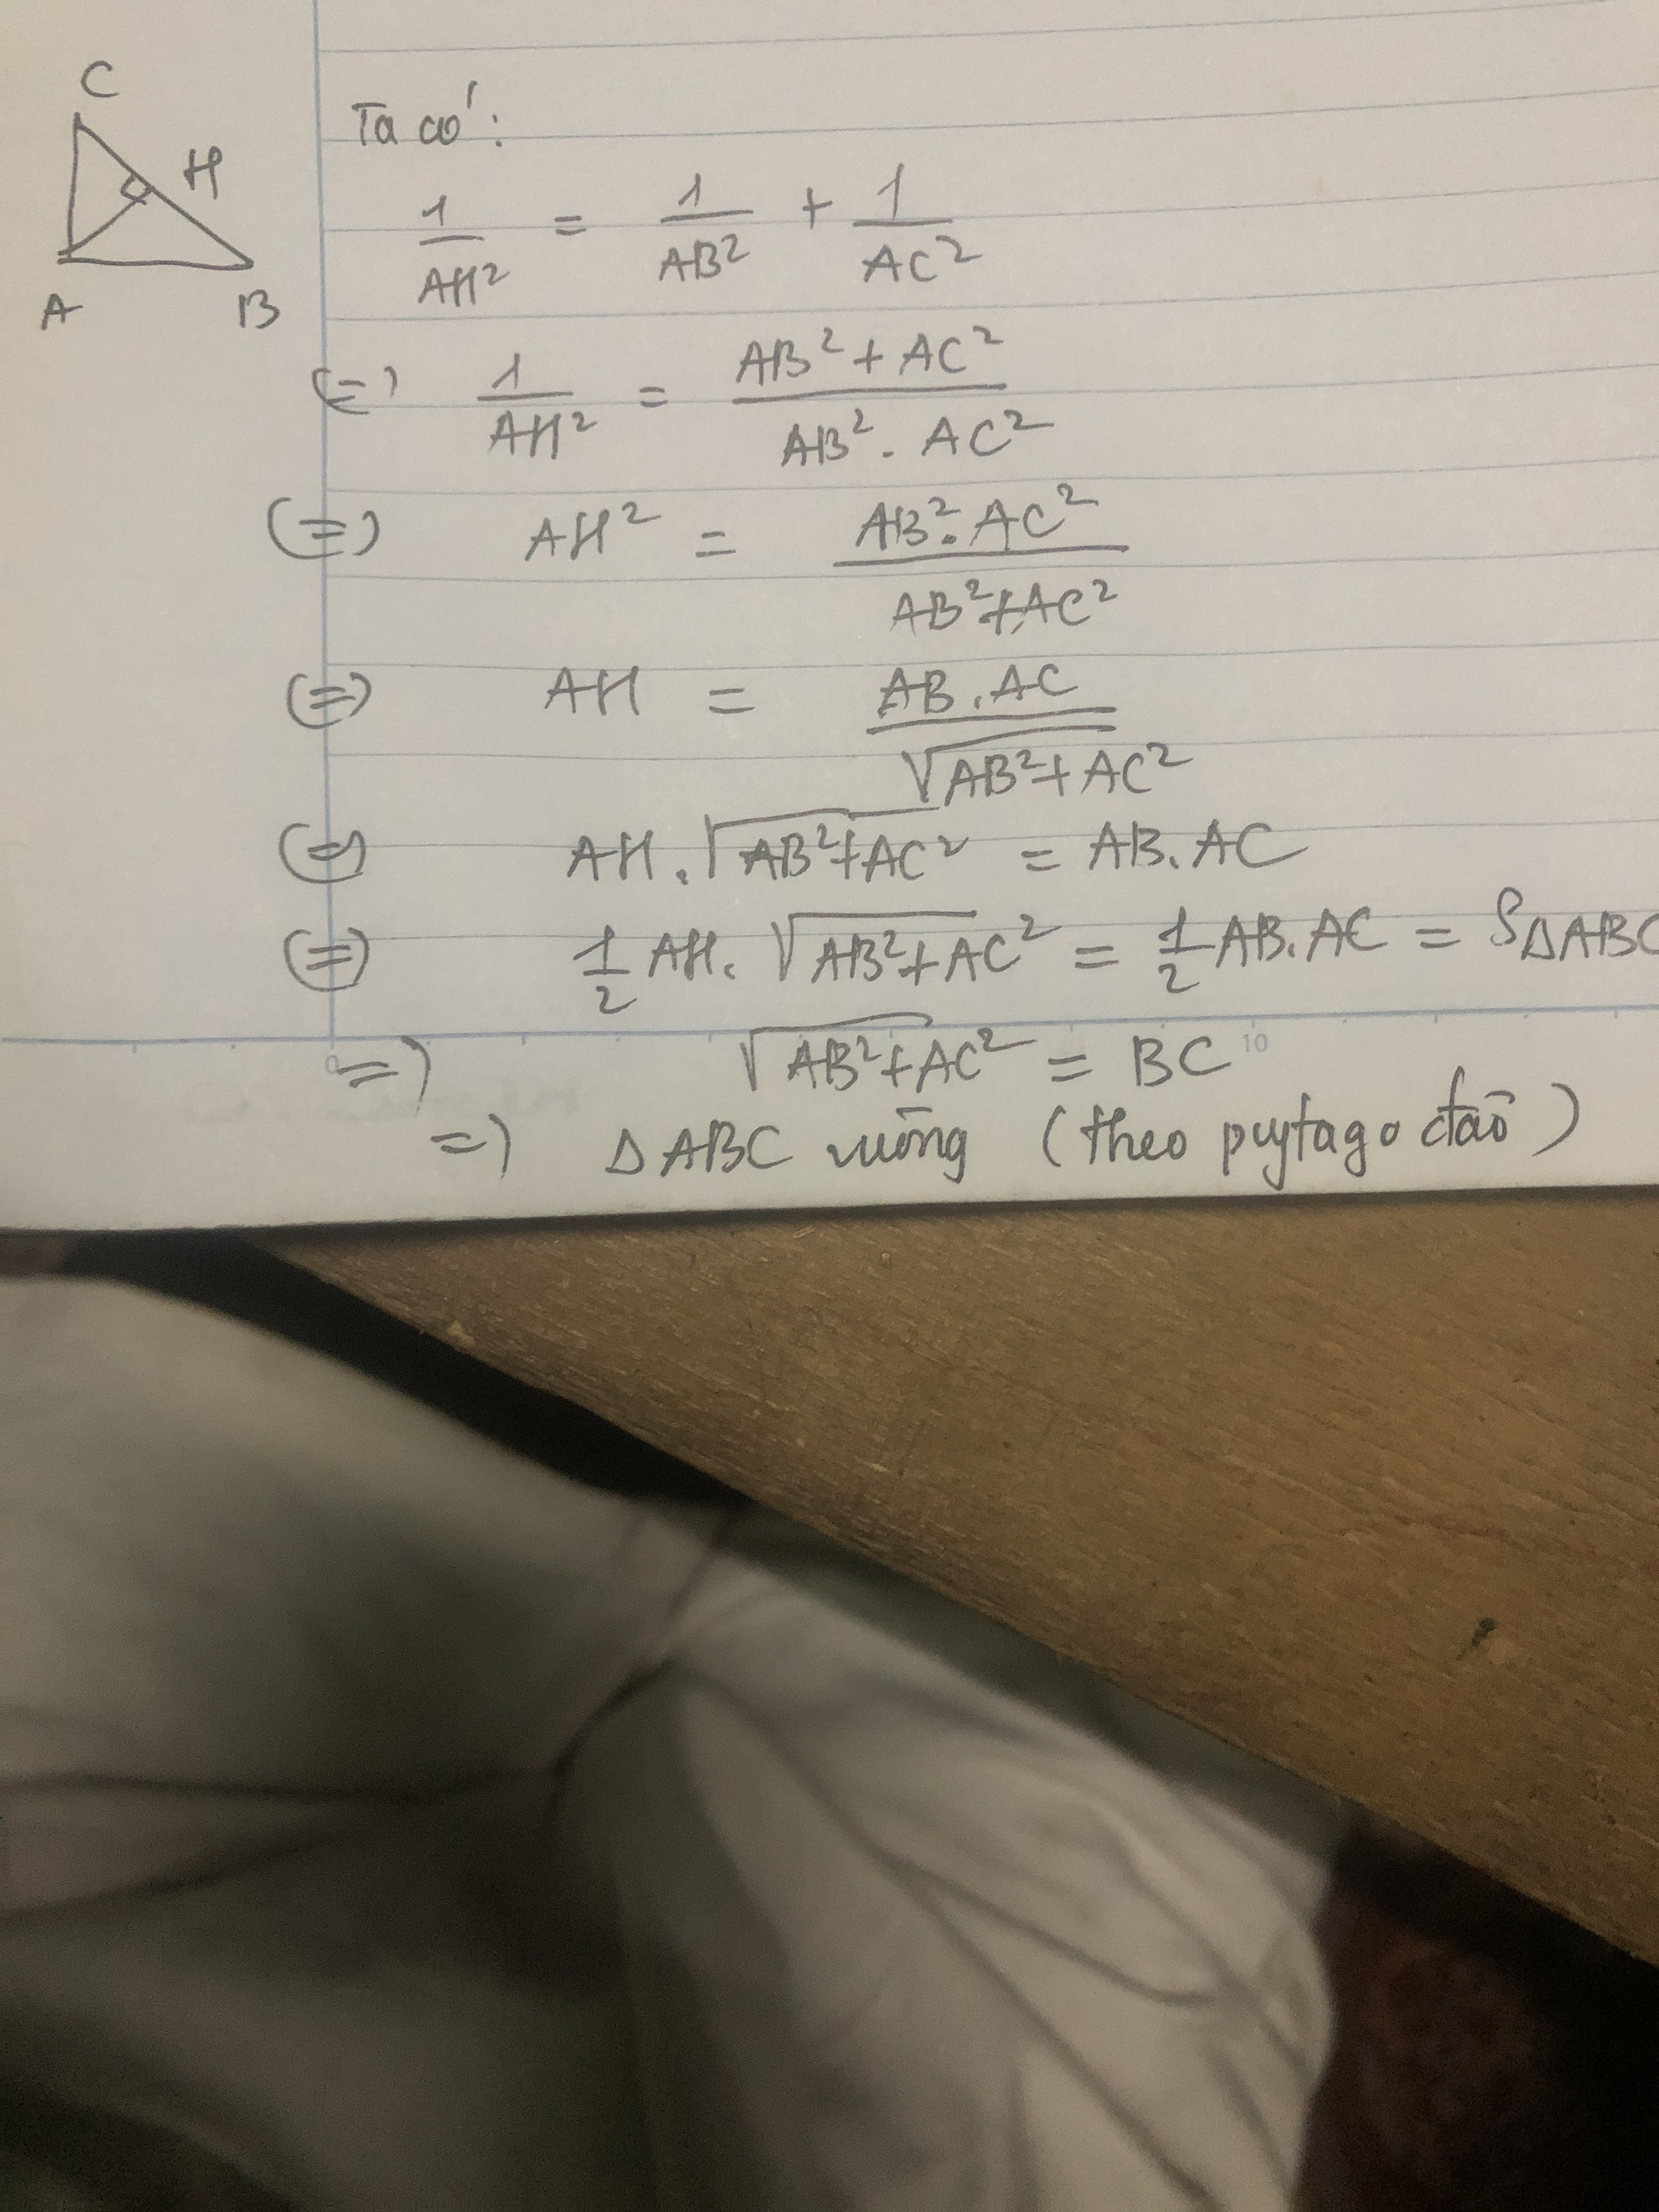 C
H
A
B
Ta có:
1/AH² = 1/AB² + 1/AC²
(=) 1/AH² = (AB² + AC²)/(AB² . AC²)
(=) AH² = (AB² . AC²)/(AB² + AC²)
(=) AH = (AB . AC)/√(AB² + AC²)
(=) AH . √(AB² + AC²) = AB . AC
(=) 1/2 AH . √(AB² + AC²) = 1/2 AB . AC = SΔABC
=) √(AB² + AC²) = BC
0 10
=) ΔABC vuông (theo pytago đảo)